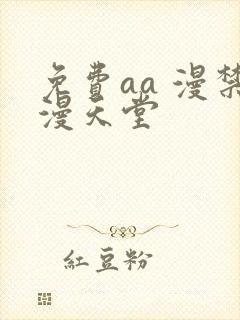 免費aa 漫禁
漫天堂
紅豆粉